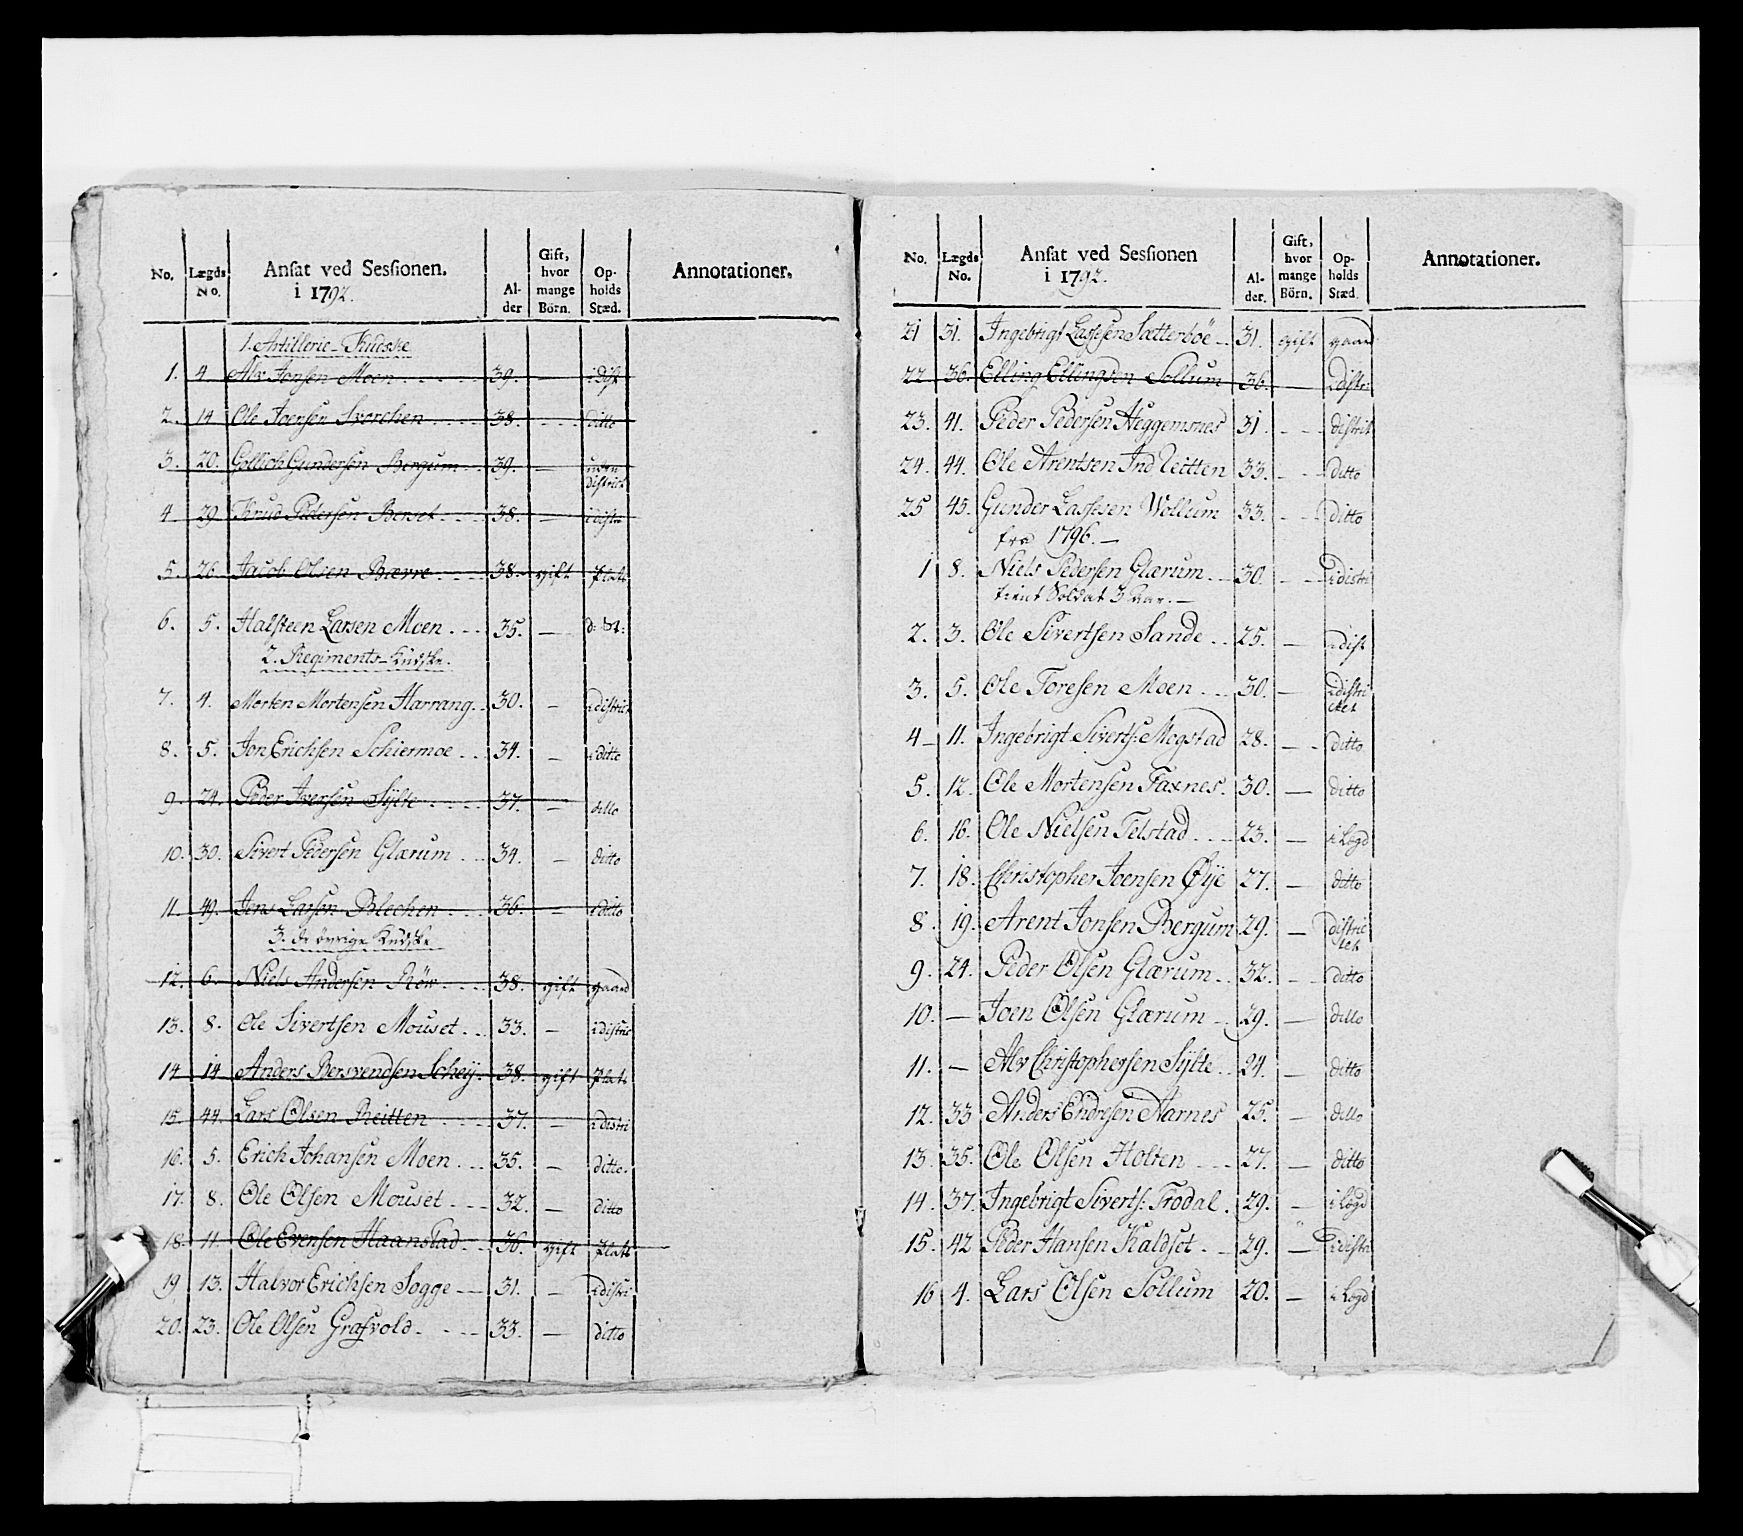 No. Lægds No. Ansat ved Sessionen. i 1792. Al-der Gift, hvor mange Börn. Op-holds Stæd. Annotationer.
1. Artillerie-Kudske
1. 4. Alv Jonsen Moen 39. — i dist
2. 14 Ole Joensen Svorchen 38. ditto
3. 20. Gollich Gundersen Bergum 39. — uden district
4 29 Knud Pedersen Berset 38. — i distri
5. 26. Jacob Olsen Bævre 38. gift plads
6. 5. Halsteen Larsen Moen 35. —
2. Regiments-Kudske.
7. 4. Morten Mortensen Harrang. 30. — i district
8. 5. Jon Erichsen Schiermoe 34. — i ditto
9. 24. Peder Iversen Sylte 37. — ditto
10. 30. Sivert Pedersen Glærum 34. — ditto
11. 49. Jens Larsen Blechen 36. — i ditto
3. de övrige Kudske
12. 6. Niels Andersen Rör 38. gift gaard
13. 8. Ole Sivertsen Mouset 33. — i distric
14 14 Anders Bersvendsen Schey 38. gift plads
15. 44. Lars Olsen Reitten 37. — i distri
16. 5. Erich Johansen Moen 35. — ditto.
17. 8. Ole Olsen Mouset 32. — ditto
18. 11. Ole Evensen Haanstad 36. gift plads
19 13. Halvor Erichsen Sogge 31. — i distri
20. 23. Ole Olsen Grafvold 33. — ditto
No. Lægds No. Ansat ved Sessionen i 1792. Al-der. Gift, hvor mange Börn. Op-holds Stæd. Annotationer.
21 31. Ingebrigt Lassesen Sætterböe 31. gift gaard
22 36. Elling Ellingsen Sollum 36. — i distri
23. 41. Peder Pedersen Heggemsnes 31. distrit
24. 44. Ole Arentsen Ind Reitten 33. ditto
25 45. Gunder Lassesen Wollum 33. ditto
fra 1796. —
1 8. Niels Pedersen Glærum 30. i distri
tient Soldat 3 Aar. —
2. 3. Ole Sivertsen Sande 25. — i dist
3. 5. Ole Toresen Moen 30. — i distri ctet
4 — 11. Ingebrigt Siverts: Mogstad 28. ditto
5. 12. Ole Mortensen Faxnes. 30. — ditto
6. 16. Ole Nielsen Telstad 23. — i Logd
7. 18. Christopher Joensen Øye 27. — ditto
8. 19. Arent Jonsen Bergum 29. — distric tet
9. 24. Peder Olsen Glærum 32. — ditto
10. — Joen Olsen Glærum 29. — ditto
11. — Alv Christophersen Sylte 24. — ditto
12. 33 Anders Endresen Aarnes 25. — ditto
13. 35. Ole Olsen Holten 27. — ditto
14. 37. Ingebrigt Siverts: Trodal. 29. — i Logd
15. 42 Peder Hansen Kaldset 29. — i distri
16 4. Lars Olsen Sollum 20. — i Logd